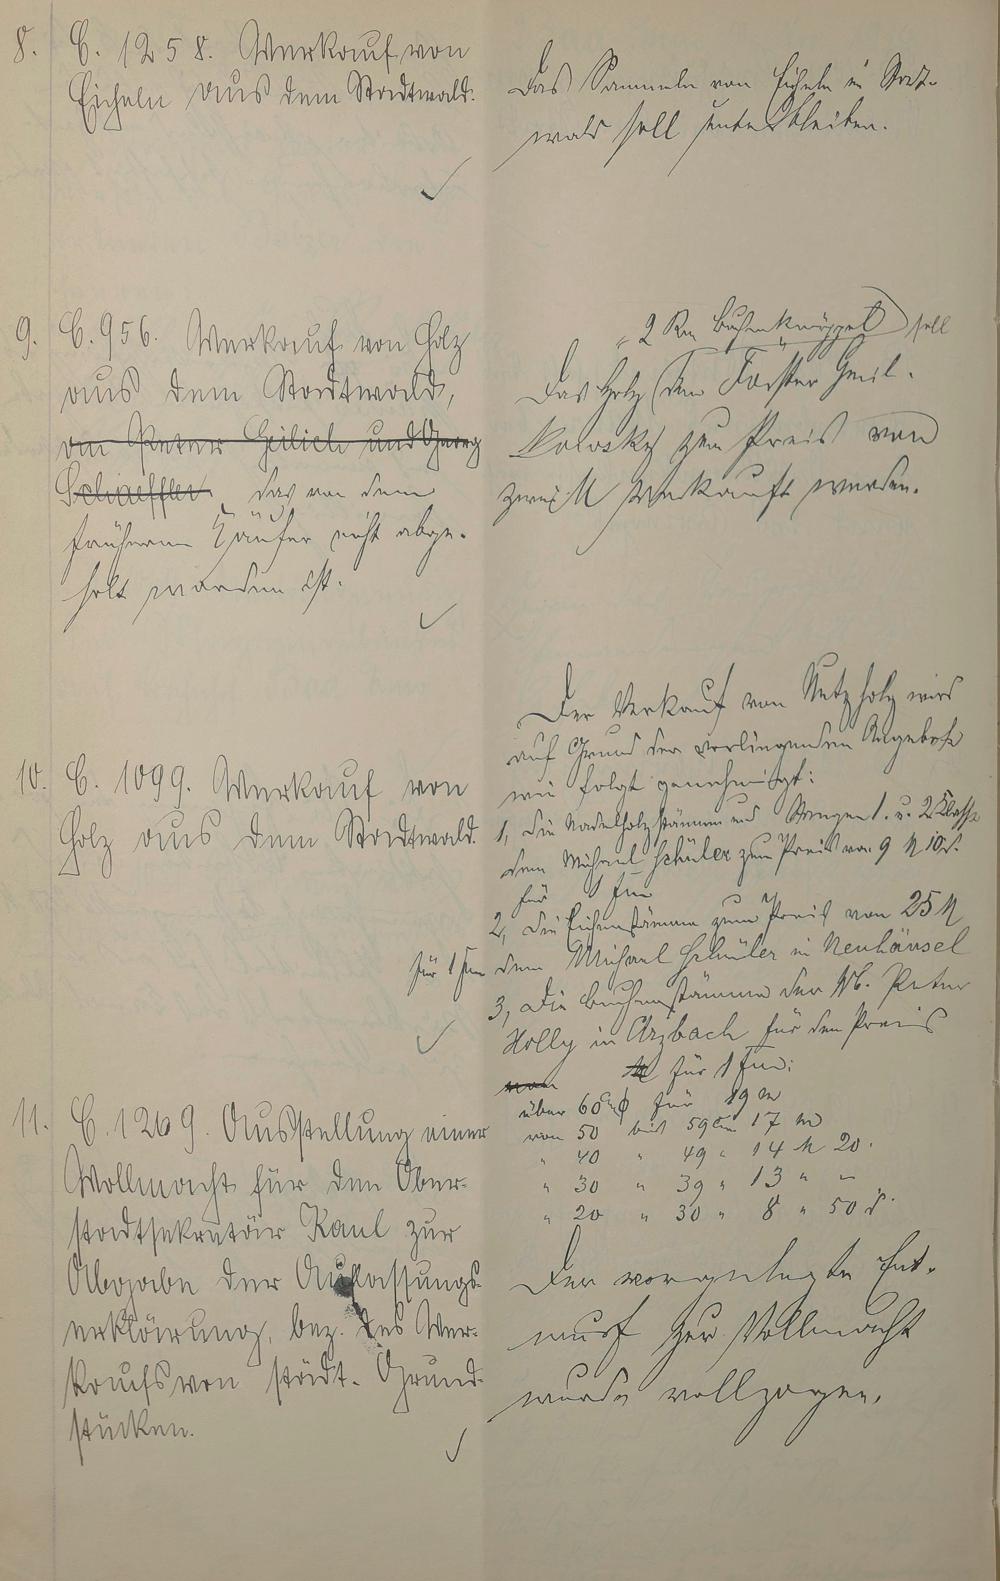 8. C. 1258. Verkauf von
Eicheln aus dem Stadtwald.
Das Sammeln von Eicheln im Stadt-
wald soll unterbleiben.
9. C. 956. Verkauf von Holz
aus dem Stadtwald,
an Peter Geilich und Georg
Schaeffler das von dem
früheren Käufer nicht abge-
holt worden ist.
„2 Rm Buchenknüppel" soll
Das Holz dem Förster
zum Preis von
zwei M verkauft werden.
10. C. 1099. Verkauf von
Holz aus dem Stadtwald.
Der Verkauf von Nutzholz wird
auf Grund der vorliegenden Angebote
wie folgt genehmigt:
1, die Nadelholzstämme und Stangen 1. u. 2 Klasse
dem Michael Schüler zum Preis von 9 M 10 d.
für 1 Fm
2, die Eichenstämme zum Preis von 25 M
für 1 Fm dem Michael Schüler in Neuhäusel
3, die Buchenstämme der Wb. Peter
Holly in Arzbach für den Preis
von M für 1 Fm:
über 60 cm ϕ für 19 M
von 50 bis 59 cm 17 M
" 40 " 49 " 14 M 20.
" 30 " 39 " 13 " -
" 20 " 30 " 8 " 50 d.
11. C. 1269. Ausstellung einer
Vollmacht für den Ober-
stadtsekretär Kaul zur
Abgabe der Auflassungs-
erklärung, bez. des Ver-
kaufs von städt. Grund-
stücken.
Der vorgelegte Ent-
wurf zur Vollmacht
wurde vollzogen.